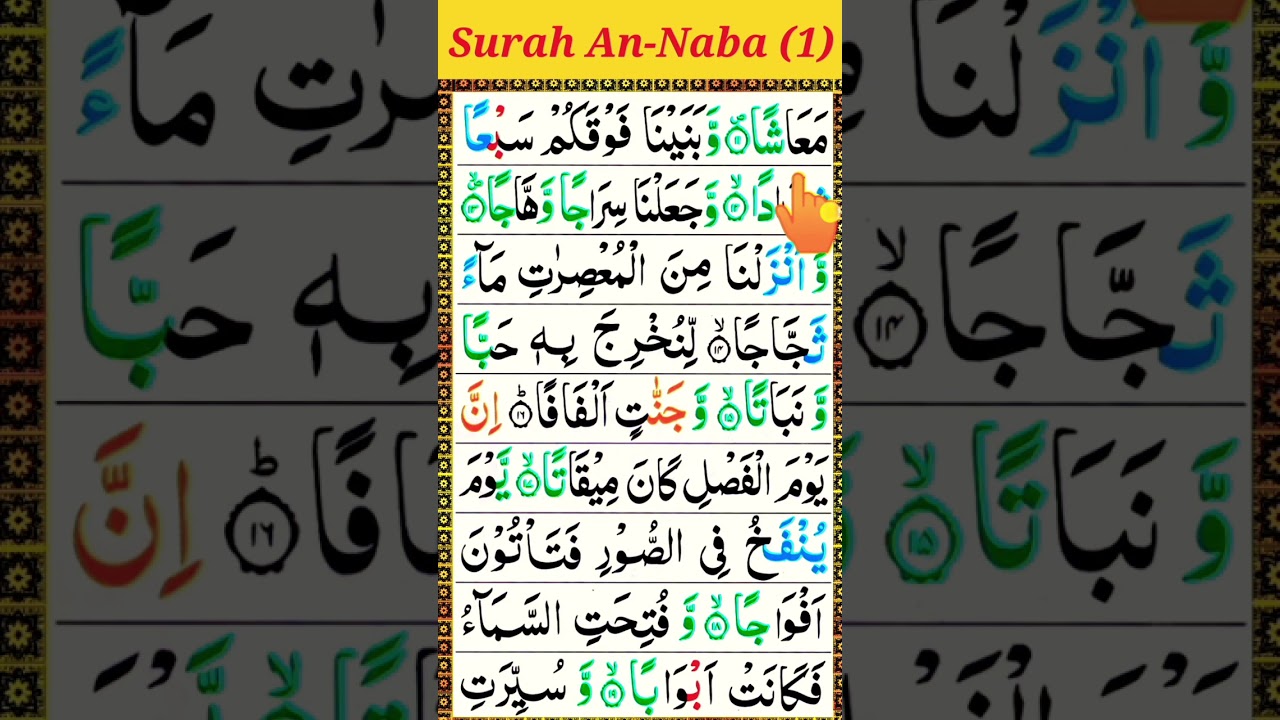 Surah An-Naba (1)
مَعَاشًا ۪﴿۱۱﴾ وَّبَنَيْنَا فَوْقَكُمْ سَبْعًا
دًا ۙ﴿۱۲﴾ وَّجَعَلْنَا سِرَاجًا وَّهَّاجًا ۪ۙ﴿۱۳﴾
وَّاَنْزَلْنَا مِنَ الْمُعْصِرٰتِ مَآءً
ثَجَّاجًا ۙ﴿۱۴﴾ لِّنُخْرِجَ بِهٖ حَبًّا
وَّ نَبَاتًا ۙ﴿۱۵﴾ وَّ جَنّٰتٍ اَلْفَافًا ؕ﴿۱۶﴾ اِنَّ
يَوْمَ الْفَصْلِ كَانَ مِيْقَاتًا ۙ﴿۱۷﴾ يَّوْمَ
يُنْفَخُ فِي الصُّوْرِ فَتَاْتُوْنَ
اَفْوَاجًا ۙ﴿۱۸﴾ وَّ فُتِحَتِ السَّمَآءُ
فَكَانَتْ اَبْوَابًا ۙ﴿۱۹﴾ وَّ سُيِّرَتِ